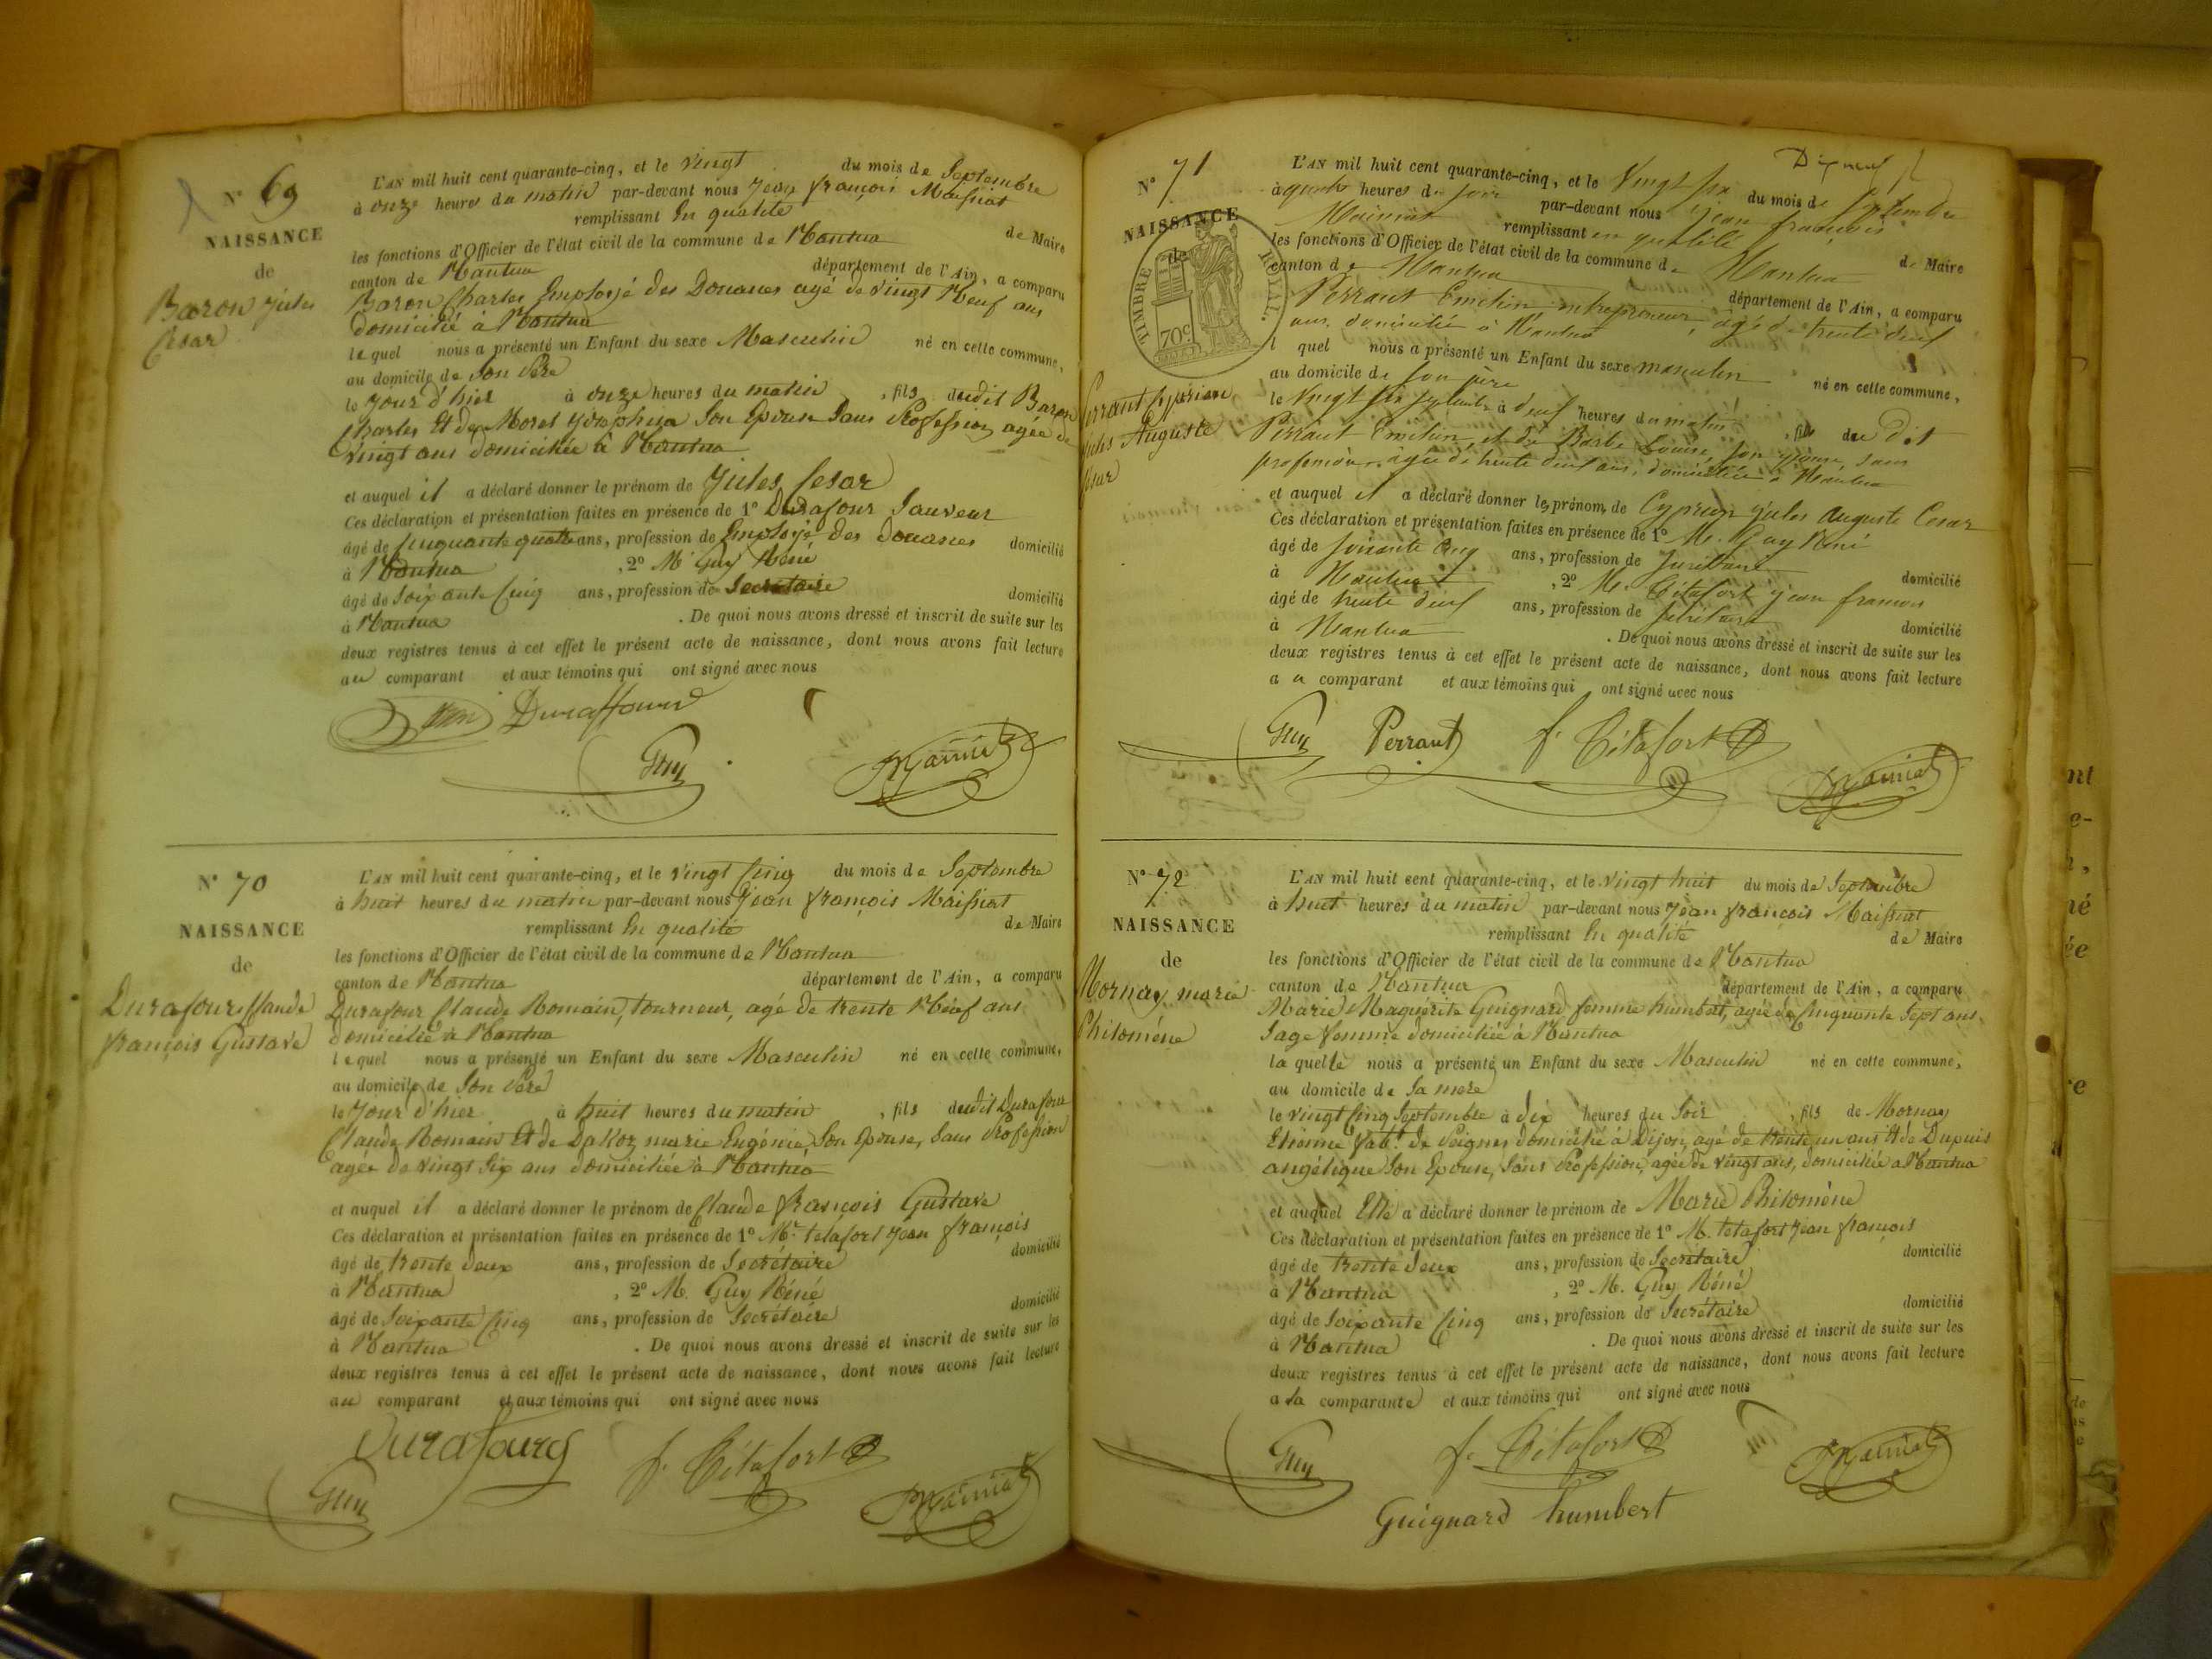 N° 69
NAISSANCE
de
Baron Jules
Cesar
L'AN mil huit cent quarante-cinq, et le vingt du mois de Septembre
à onze heures du matin par-devant nous Jean françois Maissiat
remplissant En qualité de Maire
les fonctions d'Officier de l'état civil de la commune de Nantua
canton de Nantua département de l'Ain, a comparu
Baron Charles Employé des Douanes agé de vingt Neuf ans
domicilié à Nantua
lequel nous a présenté un Enfant du sexe Masculin né en cette commune,
au domicile de Son Père
le Jour d'hier à onze heures du matin, fils dudit Baron
Charles Et de Morel Son Epouse Sans Profession agée de
vingt ans domiciliée à Nantua
et auquel il a déclaré donner le prénom de Jules Cesar
Ces déclaration et présentation faites en présence de 1° Durafour Sauveur
âgé de Cinquante quatre ans, profession de Employé des douanes domicilié
à Nantua, 2° M Guy Réné
âgé de Soixante Cinq ans, profession de Secrétaire domicilié
à Nantua. De quoi nous avons dressé et inscrit de suite sur les
deux registres tenus à cet effet le présent acte de naissance, dont nous avons fait lecture
au comparant et aux témoins qui ont signé avec nous
Duraffourd
Guy
N° 70
NAISSANCE
de
Durafour Claude
françois Gustave
L'AN mil huit cent quarante-cinq, et le vingt Cinq du mois de Septembre
à huit heures du matin par-devant nous Jean françois Maissiat
remplissant En qualité de Maire
les fonctions d'Officier de l'état civil de la commune de Nantua
canton de Nantua département de l'Ain, a comparu
Durafour Claude Romain, tourneur, agé de trente Neuf ans
domicilié à Nantua
lequel nous a présenté un Enfant du sexe Masculin né en cette commune,
au domicile de Son Père
le Jour d'hier à huit heures du matin, fils dudit Durafour
Claude Romain Et de Dalloz marie Eugénie, Son Epouse, Sans Profession
agée de vingt Six ans domiciliée à Nantua
et auquel il a déclaré donner le prénom de Claude françois Gustave
Ces déclaration et présentation faites en présence de 1° Mr. tetafort Jean françois
âgé de trente deux ans, profession de Secrétaire domicilié
à Nantua, 2° M. Guy Réné
âgé de Soixante Cinq ans, profession de Secrétaire domicilié
à Nantua. De quoi nous avons dressé et inscrit de suite sur les
deux registres tenus à cet effet le présent acte de naissance, dont nous avons fait lecture
au comparant et aux témoins qui ont signé avec nous
Durafourg
Guy f. Tétafort
N° 71
NAISSANCE
de
TIMBRE ROYAL.
70c
Perrant Cyprien
Jules Auguste
César
L'AN mil huit cent quarante-cinq, et le vingt six du mois de septembre
à quatre heures du soir par-devant nous jean françois
Maissiat remplissant en qualité de Maire
les fonctions d'Officier de l'état civil de la commune de Nantua
canton de Nantua département de l'Ain, a comparu
Perrant entrepreneur, âgé de trente deux
ans, domicilié à Nantua
l quel nous a présenté un Enfant du sexe masculin né en cette commune,
au domicile de son père
le vingt six septembre à deux heures du matin, fils du dit
Perrant et de Barbe Louise, son épouse, sans
profession, âgée de trente deux ans, domiciliée à Nantua
et auquel il a déclaré donner les prénom de Cyprien jules auguste Cesar
Ces déclaration et présentation faites en présence de 1° M. Guy Réné
âgé de soixante cinq ans, profession de secrétaire domicilié
à Nantua, 2° M. Tétafort jean françois
âgé de trente deux ans, profession de secrétaire domicilié
à Nantua. De quoi nous avons dressé et inscrit de suite sur les
deux registres tenus à cet effet le présent acte de naissance, dont nous avons fait lecture
au comparant et aux témoins qui ont signé avec nous
Guy Perrant f. Tétafort
N° 72
NAISSANCE
de
Mornay marie
Philomène
L'AN mil huit cent quarante-cinq, et le vingt huit du mois de Septembre
à huit heures du matin par-devant nous Jean françois Maissiat
remplissant En qualité de Maire
les fonctions d'Officier de l'état civil de la commune de Nantua
canton de Nantua département de l'Ain, a comparu
Marie Maguérite Guignard femme humbert, agée de Cinquante Sept ans,
Sage femme domiciliée à Nantua
la quelle nous a présenté un Enfant du sexe Masculin né en cette commune,
au domicile de Sa mère
le vingt Cinq Septembre à dix heures du Soir, fils de Mornay
Etienne fabt. de Peignes domicilié à Dijon, agé de trente un ans Et de Dupuis
angélique Son Epouse, Sans Profession, agée de vingt ans, domiciliée à Nantua
et auquel Elle a déclaré donner le prénom de Marie Philomène
Ces déclaration et présentation faites en présence de 1° M. tetafort Jean françois
âgé de trente deux ans, profession de Secrétaire domicilié
à Nantua, 2° M. Guy Réné
âgé de Soixante Cinq ans, profession de Secrétaire domicilié
à Nantua. De quoi nous avons dressé et inscrit de suite sur les
deux registres tenus à cet effet le présent acte de naissance, dont nous avons fait lecture
a la comparante et aux témoins qui ont signé avec nous
Guy f. Tétafort
Guignard humbert